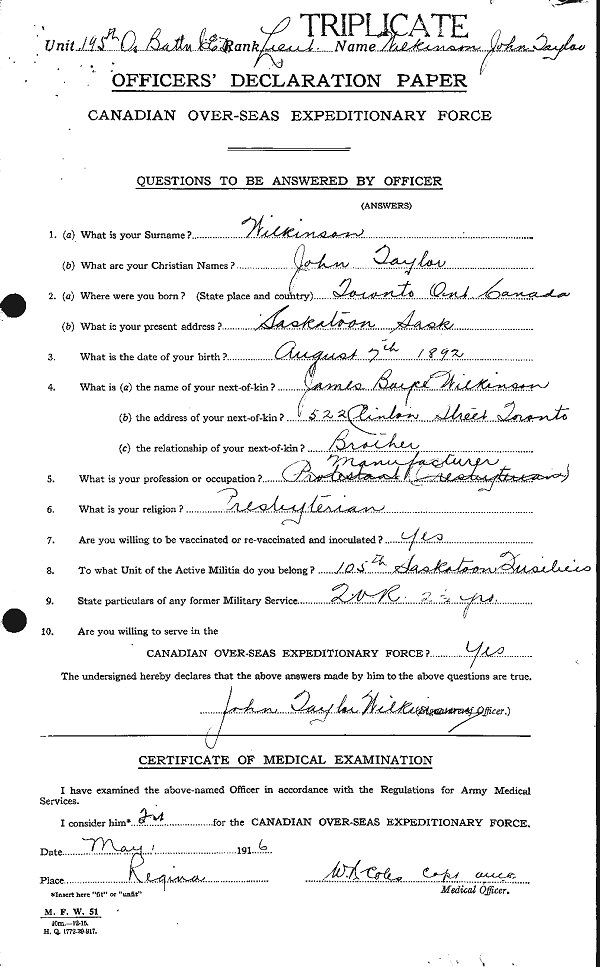 TRIPLICATE
Unit 195th O. Battn C.E.F. Rank Lieut. Name Wilkinson John Taylor
OFFICERS' DECLARATION PAPER
CANADIAN OVER-SEAS EXPEDITIONARY FORCE
QUESTIONS TO BE ANSWERED BY OFFICER
(ANSWERS)
1. (a) What is your Surname? Wilkinson
(b) What are your Christian Names? John Taylor
2. (a) Where were you born? (State place and country) Toronto Ont Canada
(b) What is your present address? Saskatoon Sask
3. What is the date of your birth? August 7th 1892
4. What is (a) the name of your next-of-kin? James Wilkinson
(b) the address of your next-of-kin? 522 Clinton Street Toronto
(c) the relationship of your next-of-kin? Brother
Manufacturer
5. What is your profession or occupation? Protestant (Presbyterian)
6. What is your religion? Presbyterian
7. Are you willing to be vaccinated or re-vaccinated and inoculated? Yes
8. To what Unit of the Active Militia do you belong? 105th Saskatoon Fusiliers
9. State particulars of any former Military Service Q O R 2½ yrs.
10. Are you willing to serve in the
CANADIAN OVER-SEAS EXPEDITIONARY FORCE? Yes
The undersigned hereby declares that the above answers made by him to the above questions are true.
John Taylor Wilkinson (Signature of Officer.)
CERTIFICATE OF MEDICAL EXAMINATION
I have examined the above-named Officer in accordance with the Regulations for Army Medical
Services.
I consider him* Fit for the CANADIAN OVER-SEAS EXPEDITIONARY FORCE.
Date May 1916
Place Regina W.K. Coles Capt AMC
*Insert here "fit" or "unfit" Medical Officer.
M. F. W. 51
H. Q. 1772-39-917.